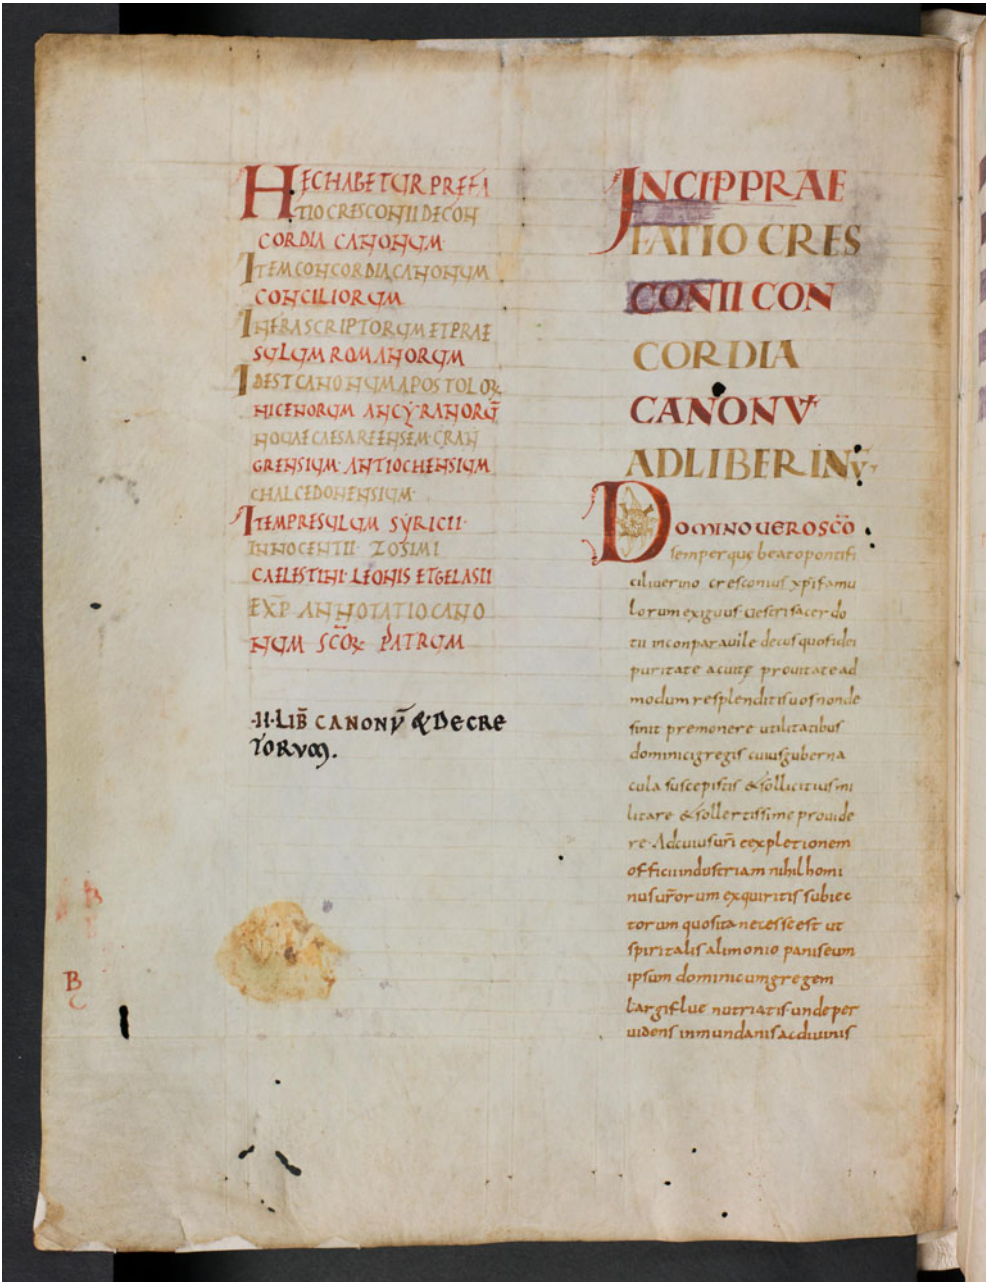 HEC HABETUR PREFA
TIO CRESCONII DE CON
CORDIA CANONUM·
ITEM CONCORDIA CANONUM
CONCILIORUM
INFRASCRIPTORUM ET PRAE
SULUM ROMANORUM
IDEST CANONUM APOSTOLOꝜ
NICENORUM ANCYRANORŪ
NOUAE CAESAREENSEM· CRAN
GRENSIUM· ANTIOCHENSIUM
CHALCEDONENSIUM·
ITEM PRESULUM SYRICII·
INNOCENTII· ZOSIMI
CAELESTINI· LEONIS ET GELASII
EXP̄ ANNOTATIO CANO
NUM SC̄OꝜ PATRUM
·II· LIB̄ CANONV̄ & DECRE
TORVM.
B
B
INCIP PRAE
FATIO CRES
CONII CON
CORDIA
CANONV̄
AD LIBERINV̄·
DOMINO UERO SC̄O
semperque beato pontifi
ci liuerino cresconius xp̄i famu
lorum exiguus· uestri sacerdo
tii inconparauile decus quo fidei
puritate acuite prouitate ad
modum resplenditis uos non de
sinit premonere utilitatibus
dominici gregis cuius guberna
cula suscepistis & sollicitius mi
litare & sollertissime prouide
re· Ad cuius ur̄i eexpletionem
officii industriam nihil homi
nus ur̄orum exquiritis subiec
torum quos ita necesse est ut
spiritalis alimonio panis eum
ipsum dominicum gregem
largiflue nutriatis· unde per
uidens in mundanis ac diuinis